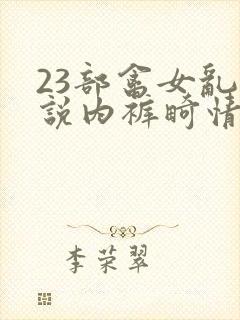 23部畜女乱
説内裤畸情
李荣翠